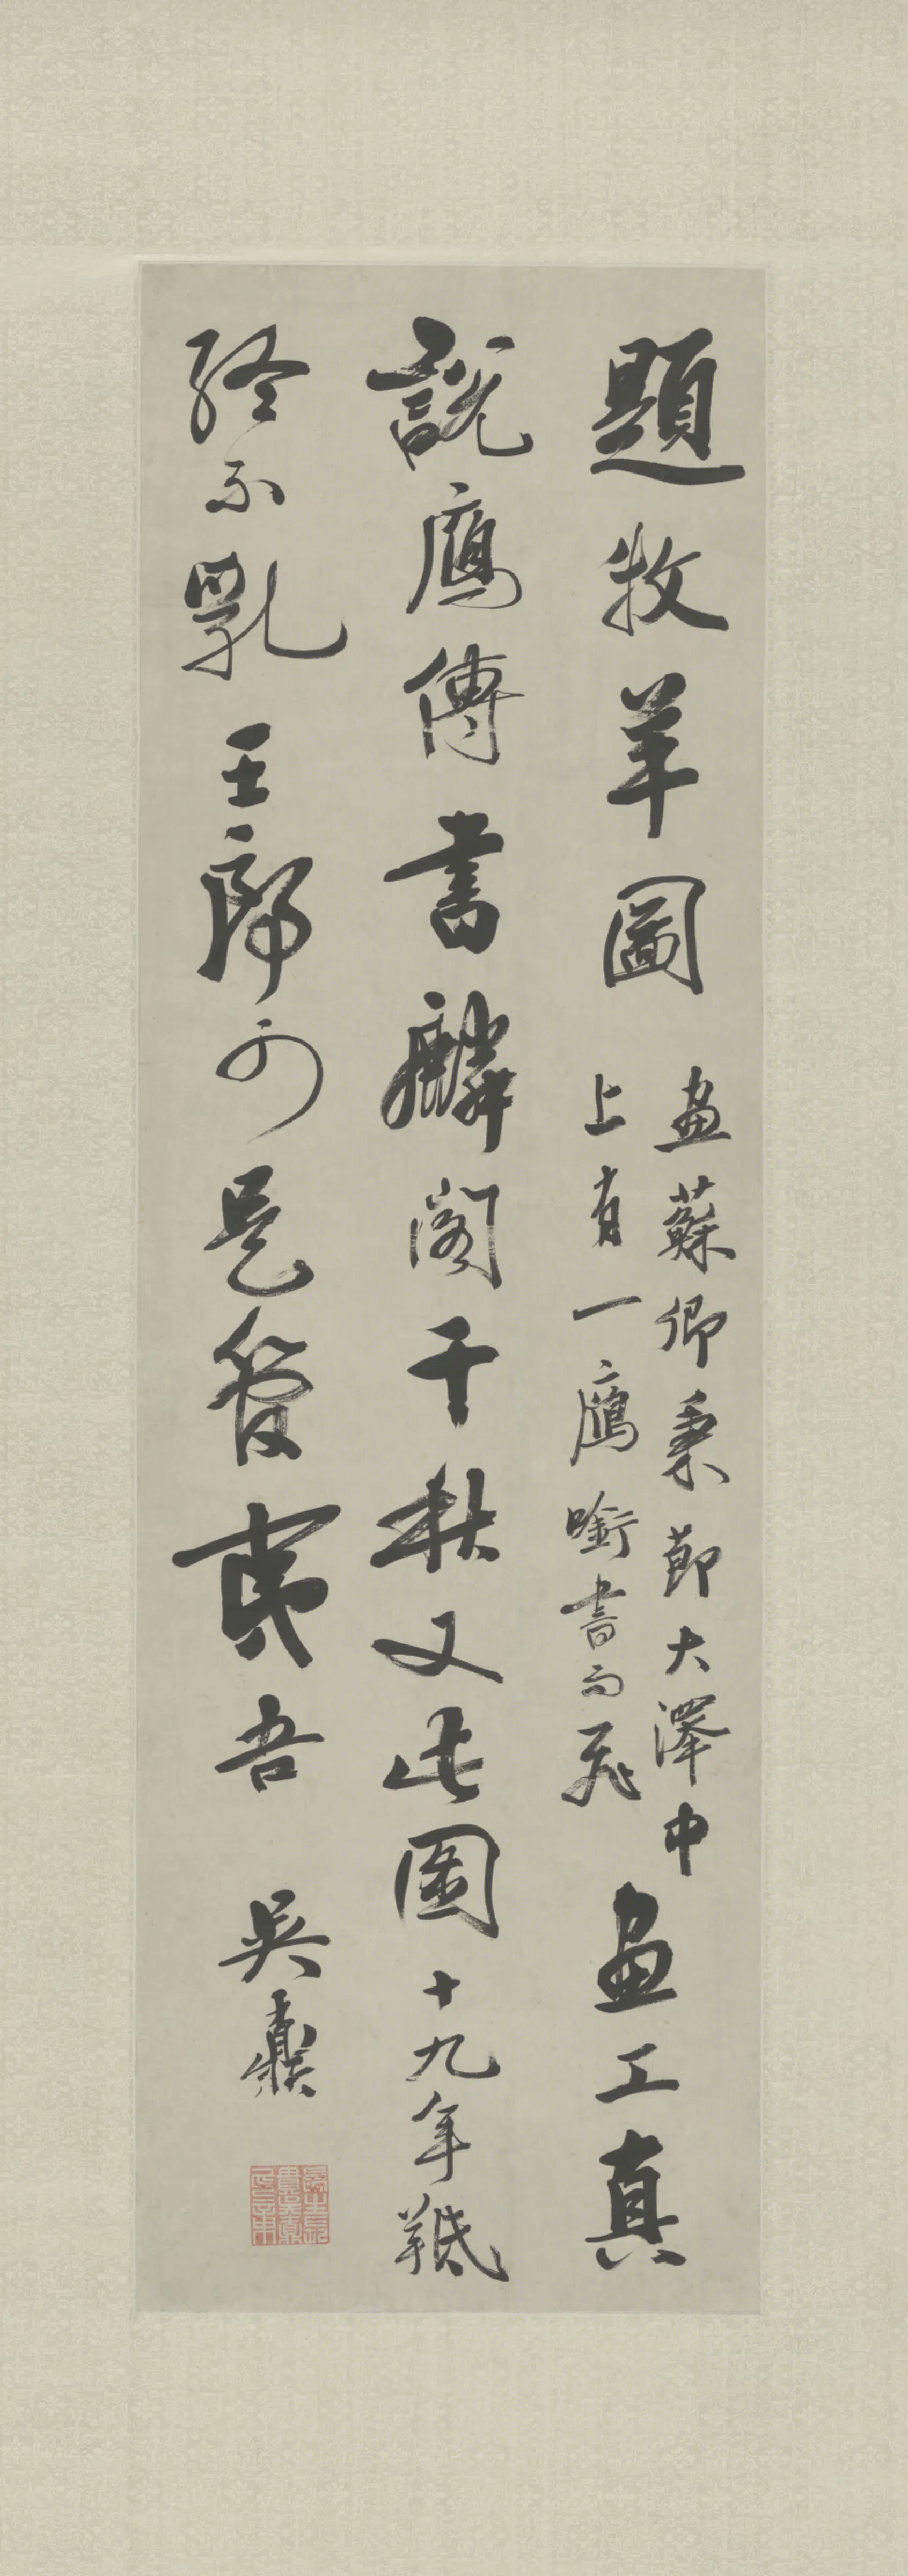 題牧羊圖
畫蘇卿秉節大澤中
上有一鴈㘅書而飛
畫工真
說鴈傳書麟閣千秋又此圖十九年羝
終不乳王可是管夷吾
吳鼒